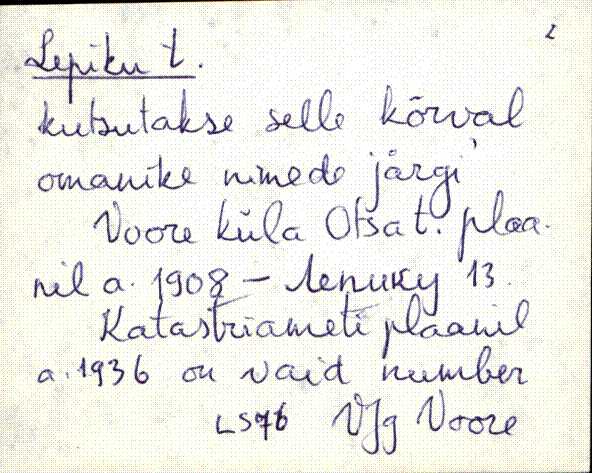 2
Lepiku t.
kutsutakse selle kõrval
omanike nimede järgi
Voore küla Otsa t. plaa-
nil a. 1908 – Лепику 13.
Katastriameti plaanil
a. 1936 on vaid number
LS76 VJg Voore